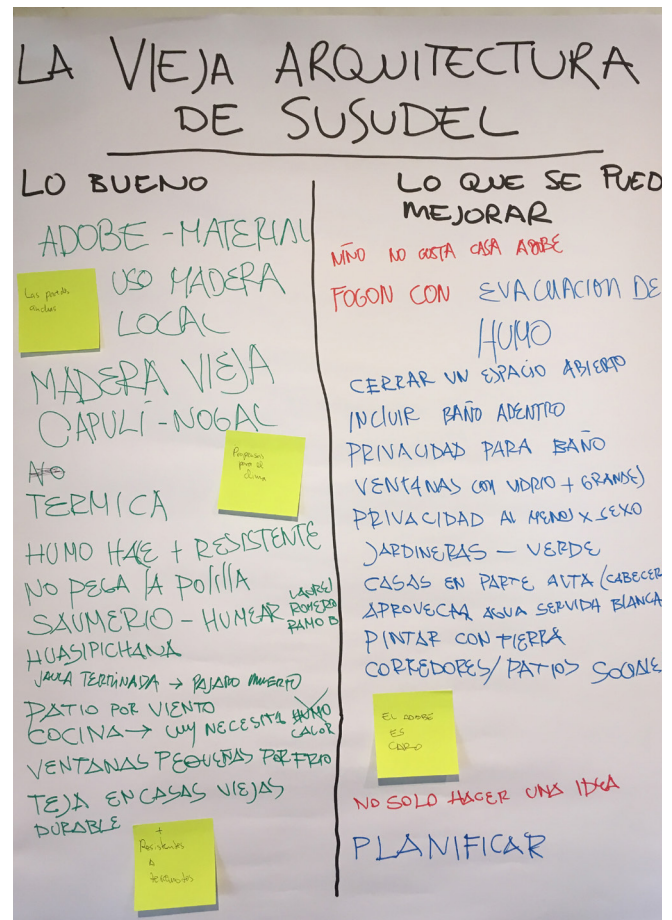 LA VIEJA ARQUITECTURA
DE SUSUDEL
LO BUENO
ADOBE - MATERIAL
Las paredes
anchas
USO MADERA
LOCAL
MADERA VIEJA
CAPULÍ - NOGAL
para el
clima
TERMICA
HUMO HACE + RESISTENTE
NO PEGA LA POLILLA
SAUMERIO - HUMEAR LAUREL
ROMERO
RAMO B
HUASIPICHANA
JAULA TERMINADA → PAJARO MUERTO
PATIO POR VIENTO
COCINA → CUY NECESITA HUMO
CALOR
VENTANAS PEQUEÑAS POR FRIO
TEJA EN CASAS VIEJAS
DURABLE
+
Resistentes
a
terremotos
LO QUE SE PUED
MEJORAR
NIÑO NO GUSTA CASA ADOBE
FOGON CON EVACUACION DE
HUMO
CERRAR UN ESPACIO ABIERTO
INCLUIR BAÑO ADENTRO
PRIVACIDAD PARA BAÑO
VENTANAS CON VIDRIO + GRANDES
PRIVACIDAD AL MENOS X SEXO
JARDINERAS - VERDE
CASAS EN PARTE ALTA (CABECER
APROVECAR AGUA SERVIDA BLANCA
PINTAR CON TIERRA
CORREDORES/PATIOS SOCIALE
EL ADOBE
ES
CARO
NO SOLO HACER UNA IDEA
PLANIFICAR